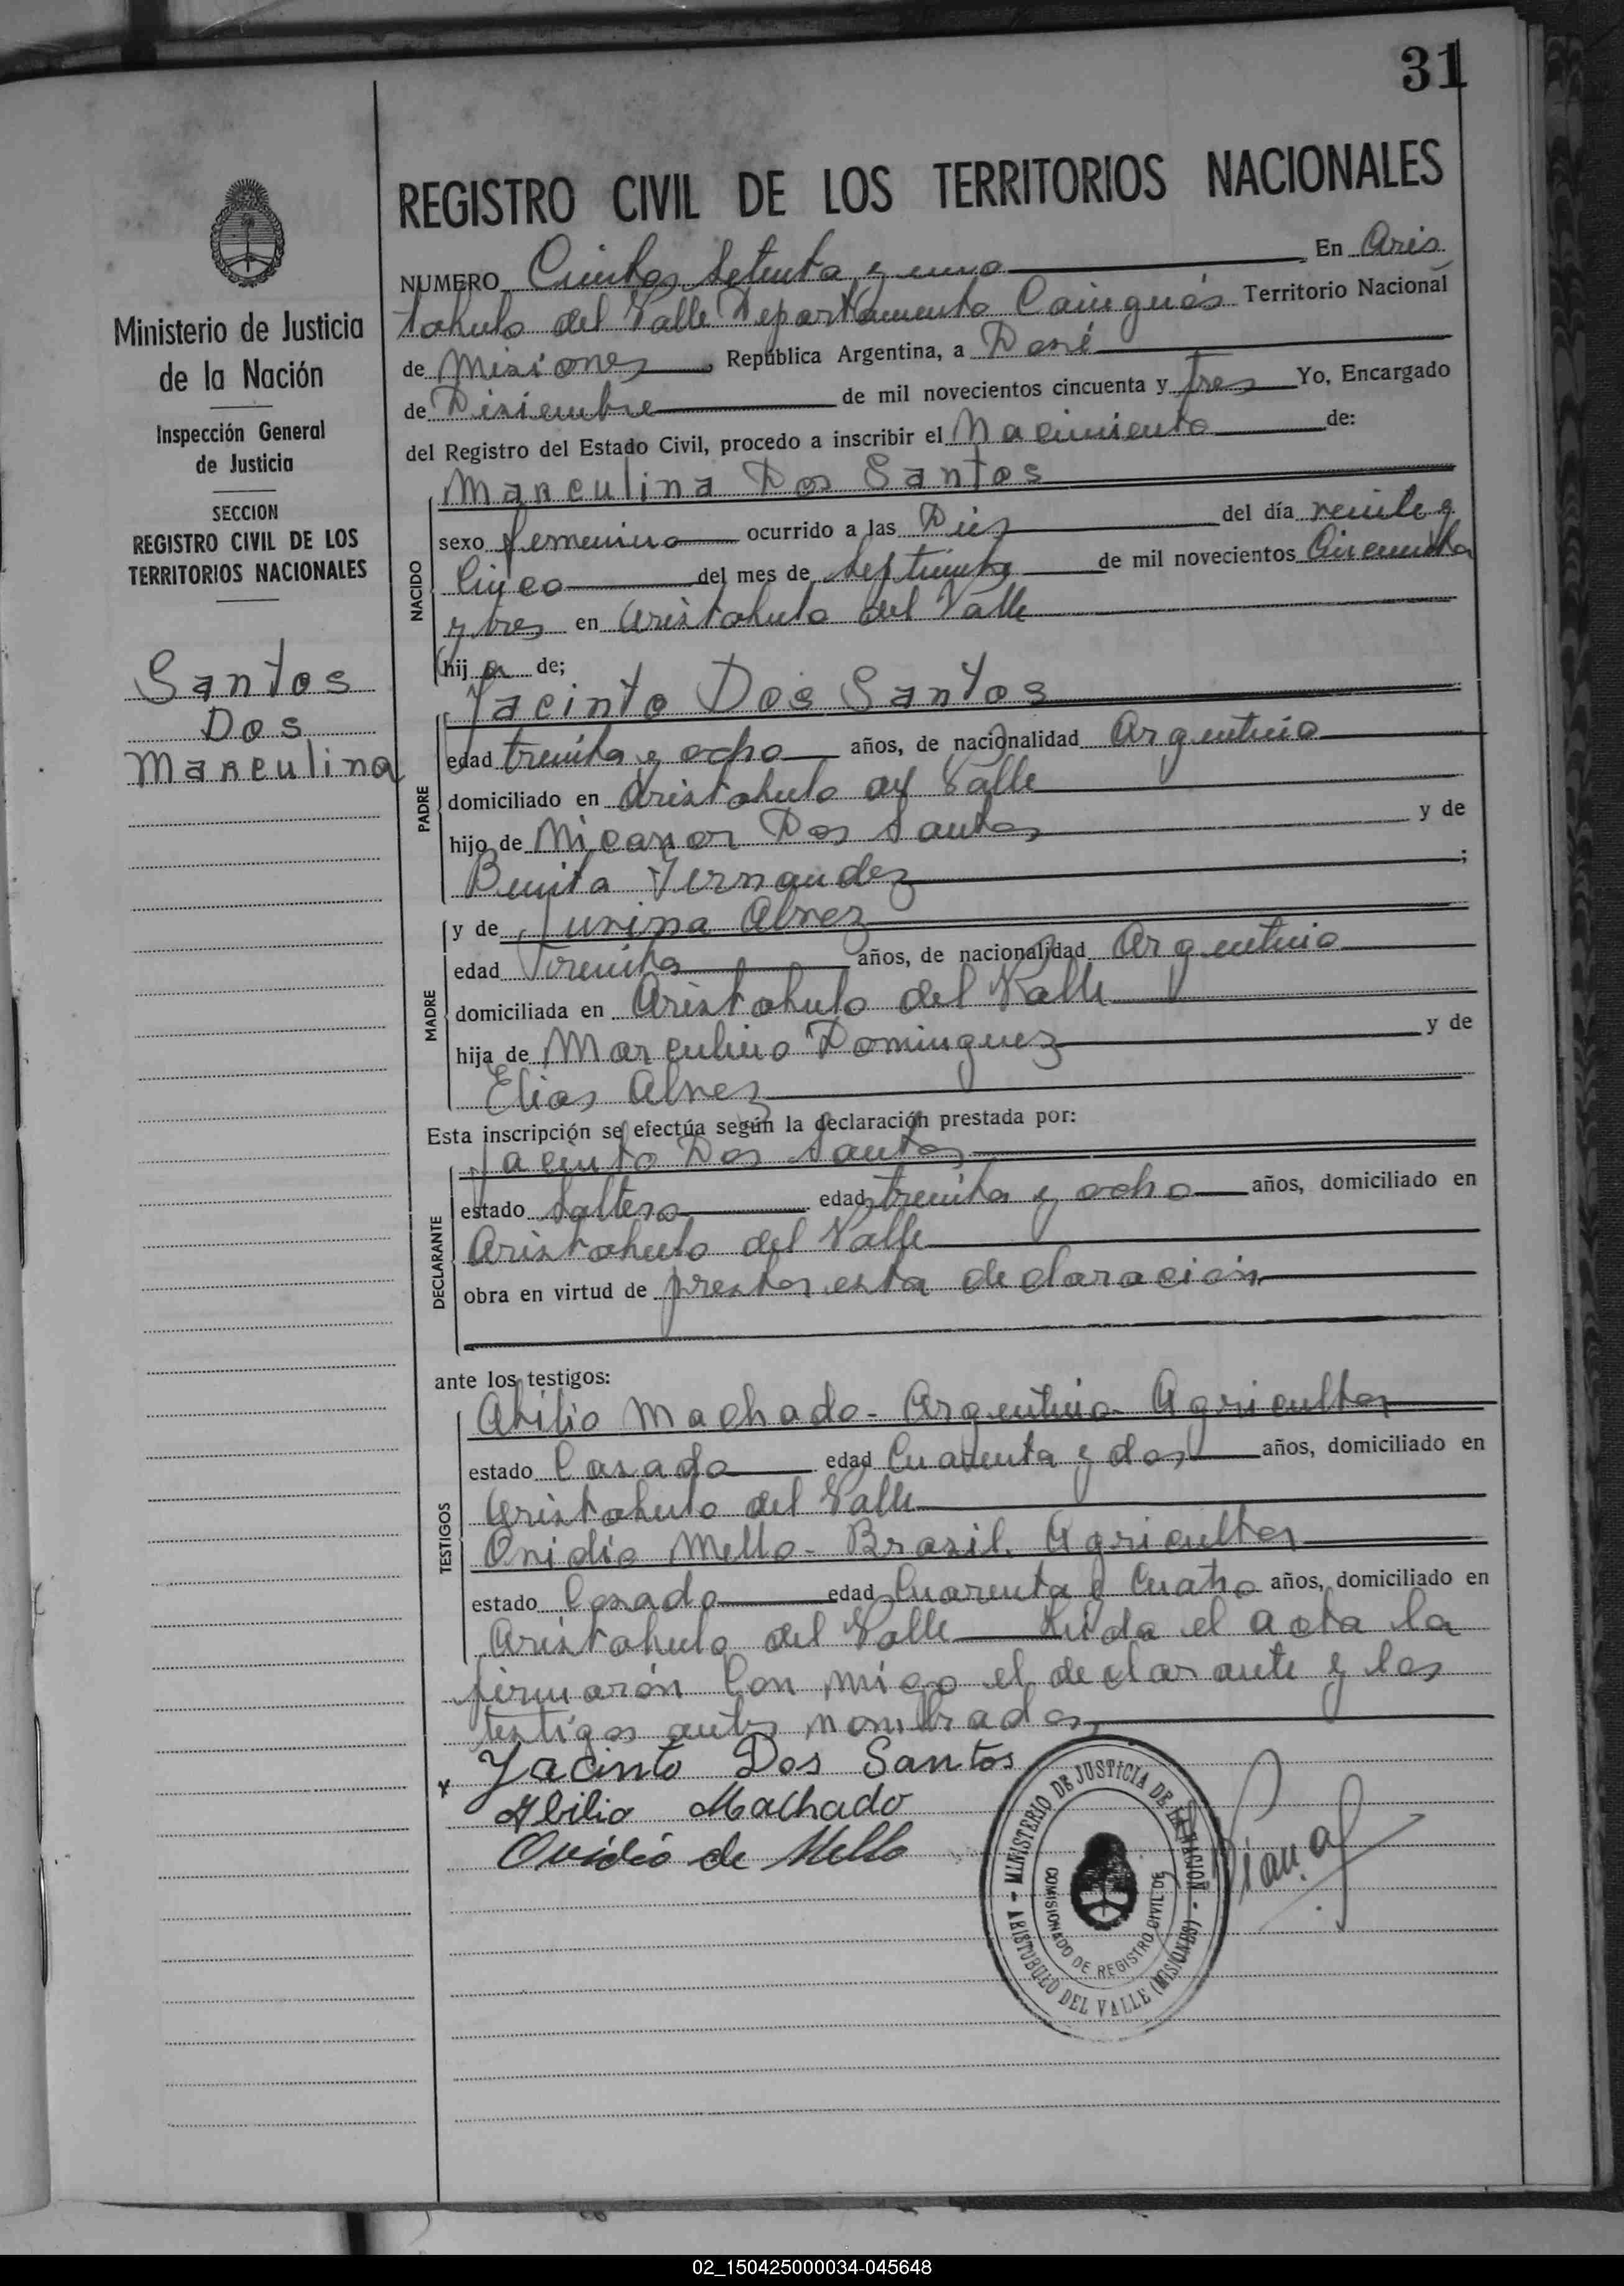 31
REGISTRO CIVIL DE LOS TERRITORIOS NACIONALES
Ministerio de Justicia
de la Nación
Inspección General
de Justicia
SECCION
REGISTRO CIVIL DE LOS
TERRITORIOS NACIONALES
Santos
Dos
Marculina
NUMERO Cientos Setenta y uno En Aris
tobulo del Valle Departamento Cainguás Territorio Nacional
de Misiones, República Argentina, a Dosé
de Disiembre de mil novecientos cincuenta y tres Yo, Encargado
del Registro del Estado Civil, procedo a inscribir el Nacimiento de:
NACIDO
Marculina Dos Santos
sexo femenino ocurrido a las Diez del día veinte y
Cinco del mes de Septiembre de mil novecientos Cincuenta
y tres en Aristobulo del Valle
hij a de;
PADRE
Jacinto Dos Santos
edad treinta y ocho años, de nacionalidad Argentino
domiciliado en Aristobulo del Valle
hijo de Nicanor Dos Santos y de
Benita Fernandez ;
MADRE
y de Alvez
edad Treinta años, de nacionalidad Argentino
domiciliada en Aristobulo del Valle
hija de Marculino Dominguez y de
Elias Alvez
Esta inscripción se efectúa según la declaración prestada por:
DECLARANTE
Jacinto Dos Santos
estado Soltero edad treinta y ocho años, domiciliado en
Aristobulo del Valle
obra en virtud de prestar esta declaración
ante los testigos:
TESTIGOS
Abilio Machado - Argentino - Agricultor
estado Casado edad Cuarenta y dos años, domiciliado en
Aristobulo del Valle
Ovidio Mello - Brasil. Agricultor
estado Casado edad Cuarenta y Cuatro años, domiciliado en
Aristobulo del Valle Leida el acta la
firmarón Con migo el declarante y los
testigos antes nombrados
x Jacinto Dos Santos
Abilio Machado
Ovidio de Mello
MINISTERIO DE JUSTICIA DE LA NACION - ARISTOBULO DEL VALLE (MISIONES) -
COMISIONADO DE REGISTRO CIVIL DE
02_150425000034-045648